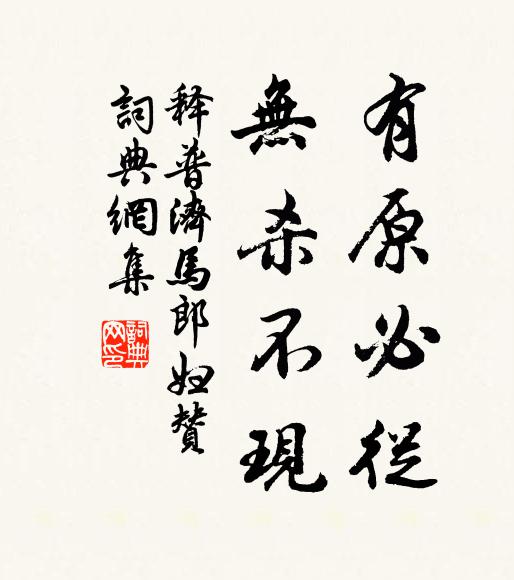 有原必從
無杀不現
释普濟馬郎婦贊
詞典網集
詞典網印